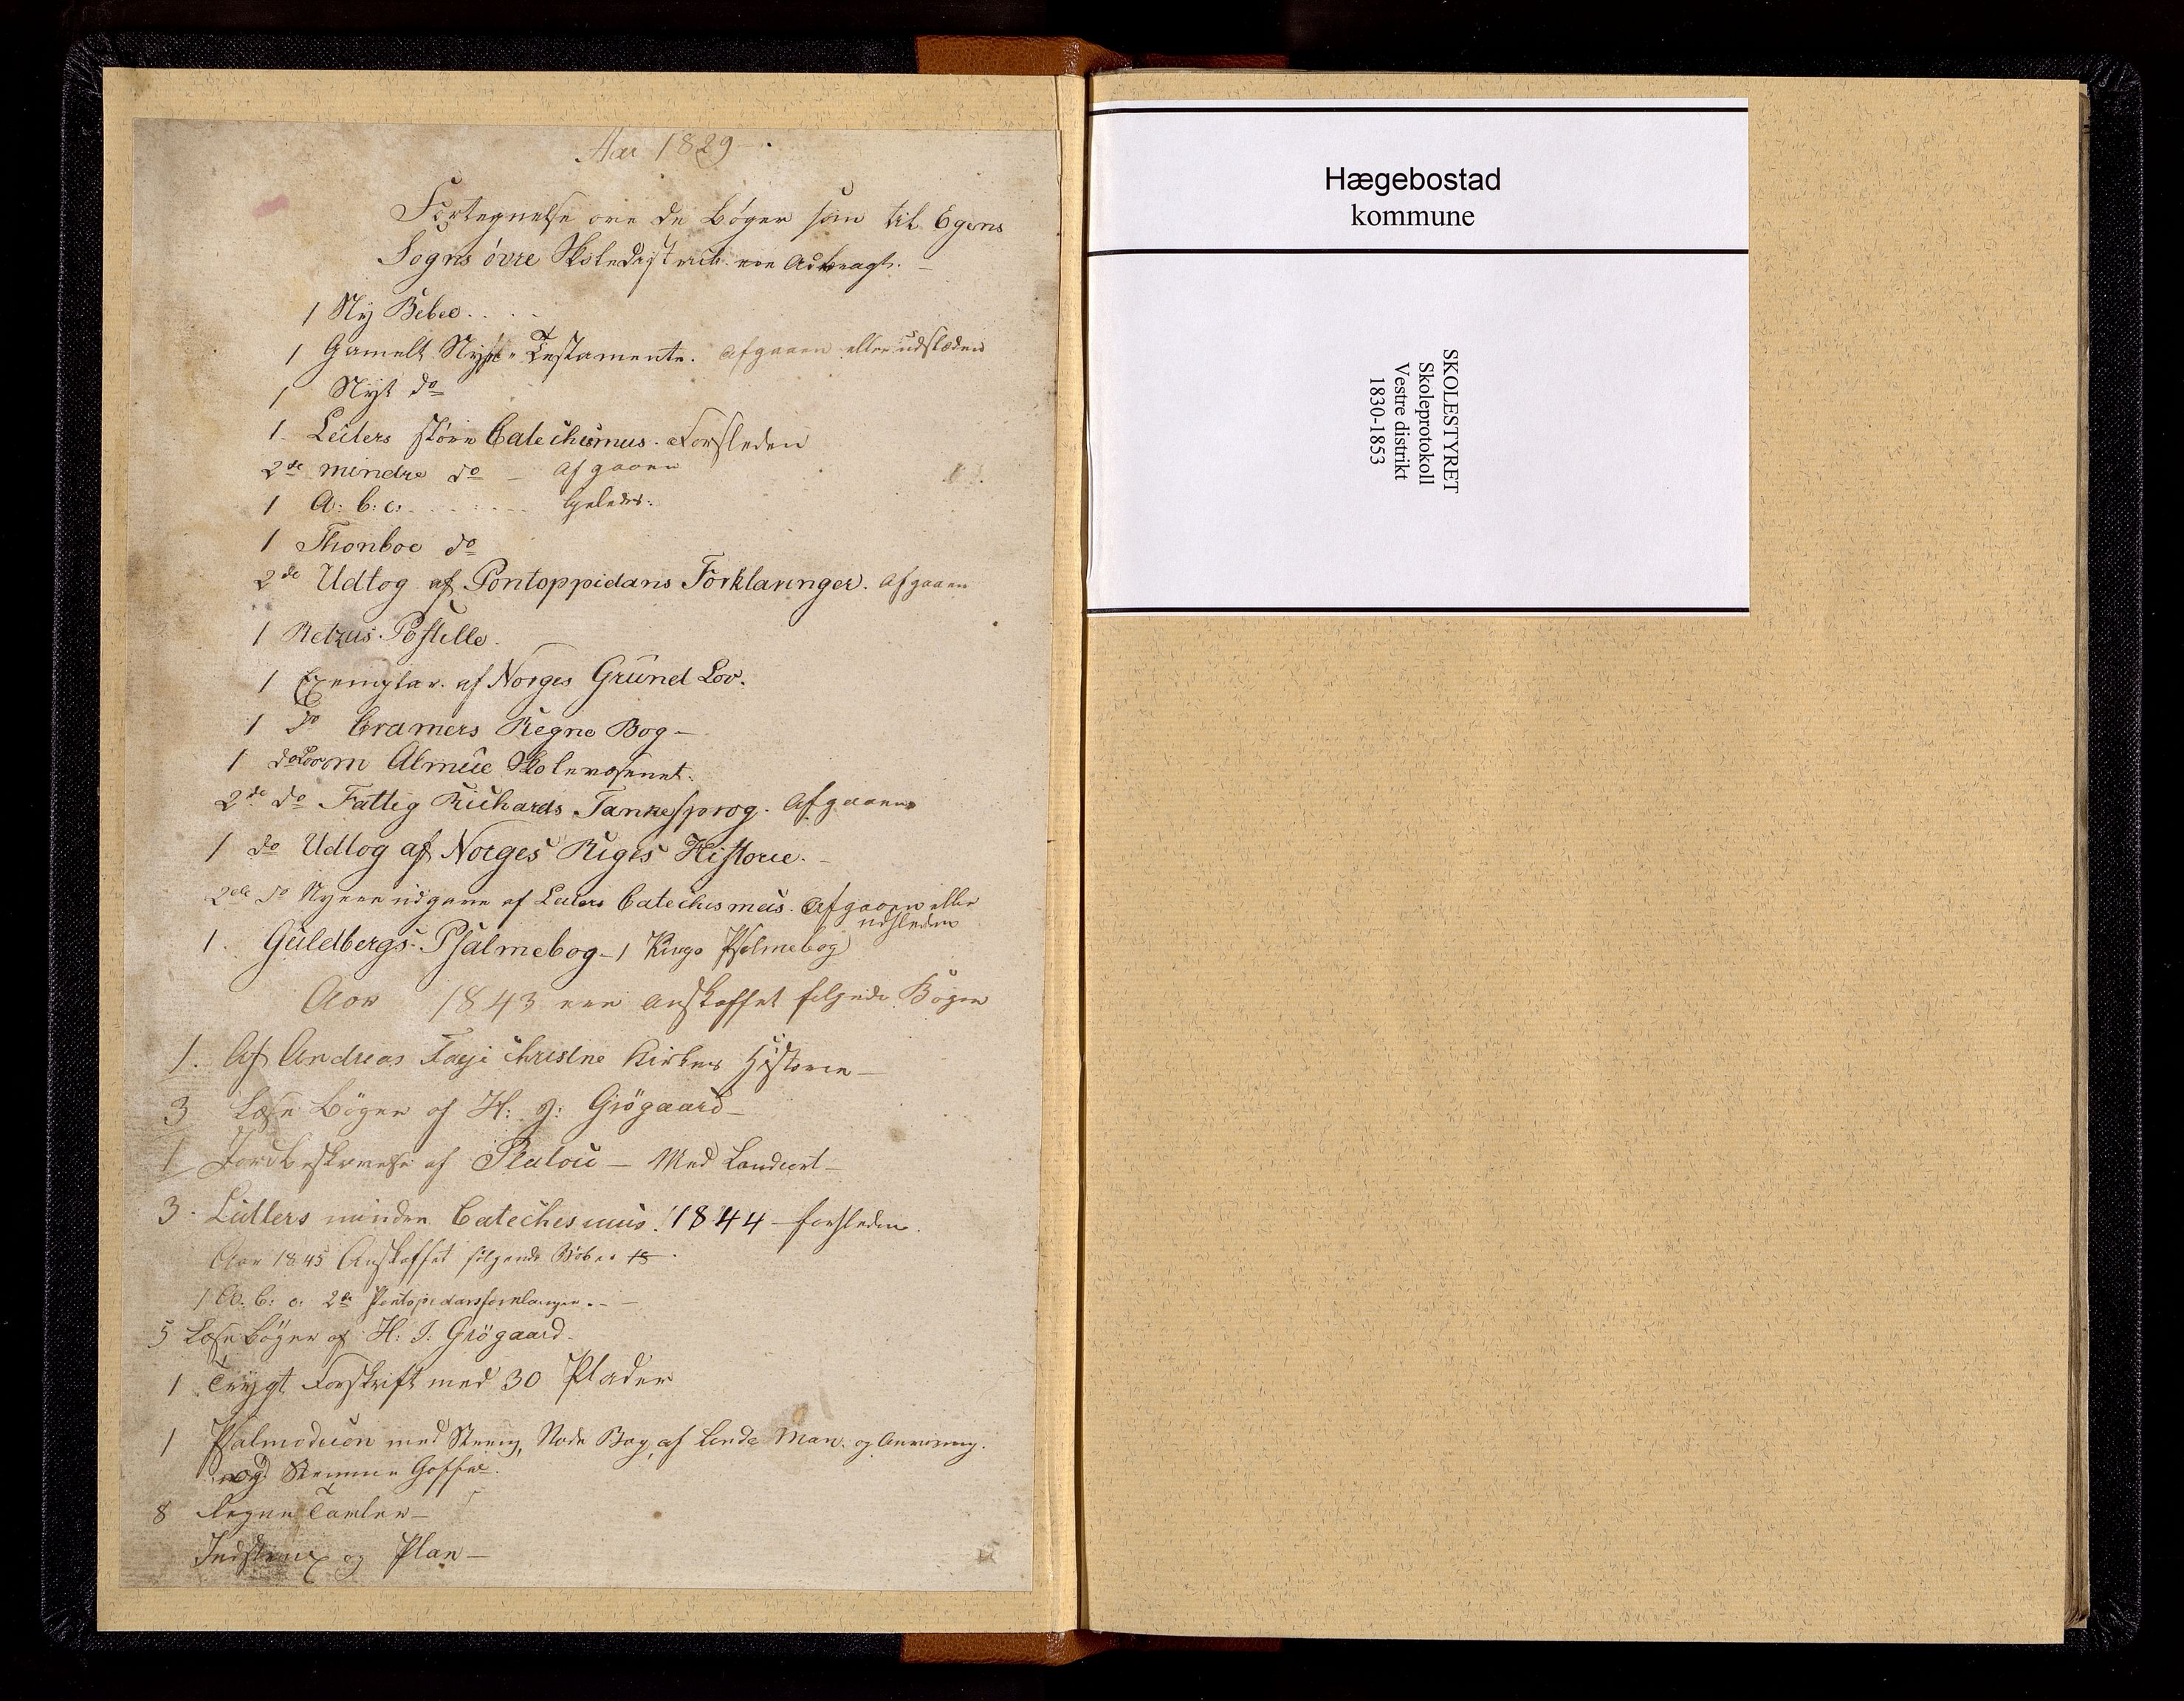 Aar 1829
Fortegnelse over de Bøger som til Egens
Sogns övre Skoledistrict ere
1 Ny Bibel . . . .
1 Gamelt Nyt Testamente. Afgaaen eller udsleden
1 Nyt do
1. Luters større Catechismus. Forsleden
2de mindre do - Afgaaen
1 A: b: c. . . . . . . . ligeledes.
1 Thonboe do
2de Udtog af Pontoppidans Forklaringer. Afgaaen
1 Retzius Postille.
1 Exemplar af Norges Grund Lov.
1 do Cramers Regne Bog -
1 do Lov om Almue Skolevæsenet.
2de do Fattig Richards Tankesprog. Afgaaen
1 do Udtog af Norges Riges Historie. -
2de do Nyere udgave af Luters Catechismus. Afgaaen eller
udsleden
1. Guldbergs Psalmebog - 1 Kingo Psalmebog
Aar 1843 ere anskaffet følgende Bøger
1. Af Andreas Faye Christne Kirkes Historie -
3 Læse Bøger af H: J: Grögaard -
1 Jordbeskrivelse af Platou - Med Landcort -
3. Lutters mindre Catechismus. 1844 forsleden.
Aar 1845 Anskaffet følgende
1 A. b: c. 2de
5 Læse Bøger af H: J: Grögaard -
1 Trygt Forskrift med 30 Plader
1 Psalmodicon med Streng, Node Bog af Linde Man. og Anvisning.
og Stemme
8 Regne Tavler -
Instrux og Plan -
Hægebostad
kommune
SKOLESTYRET
Skoleprotokoll
Vestre distrikt
1830-1853